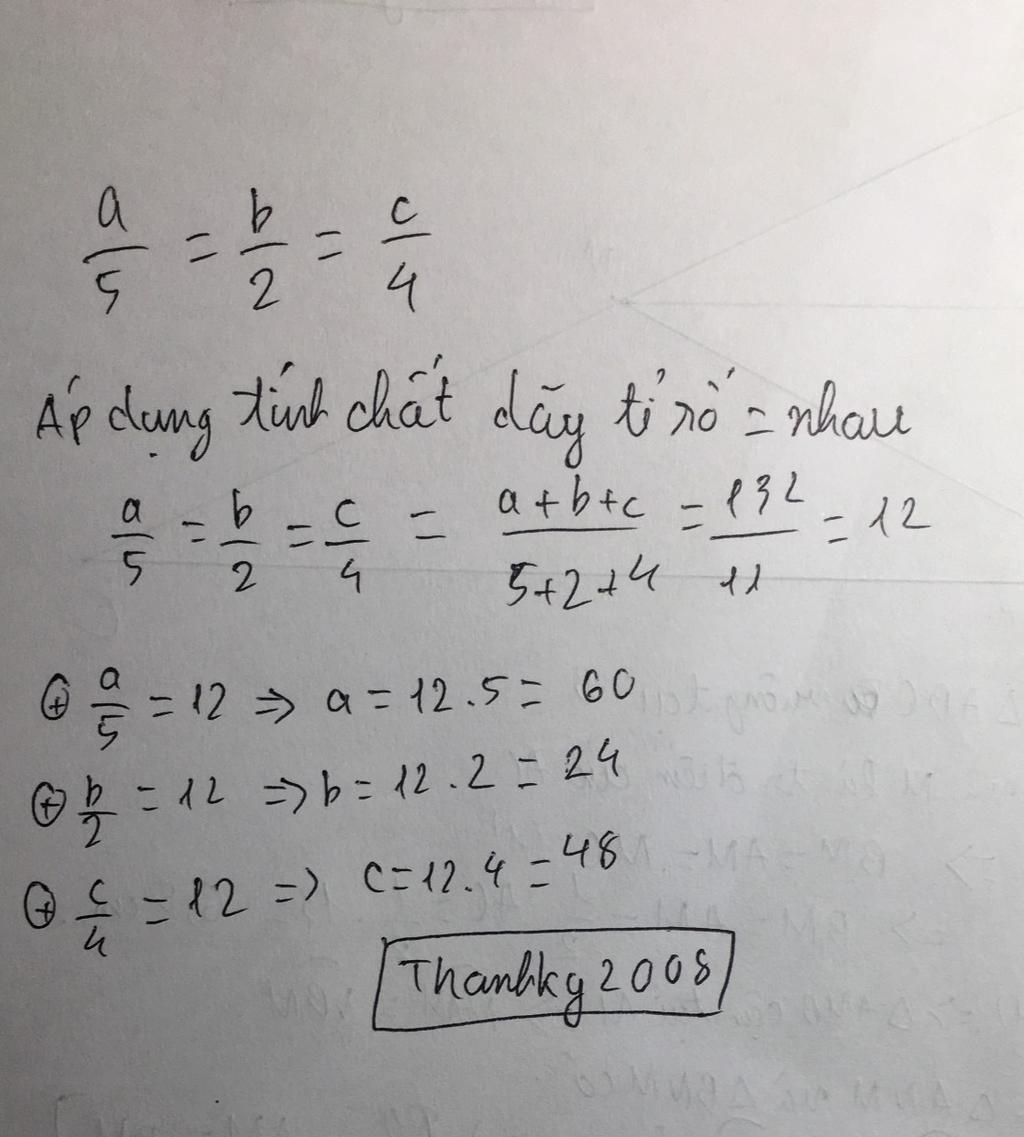 a/5 = b/2 = c/4
Áp dụng tính chất dãy tỉ số = nhau
a/5 = b/2 = c/4 = (a+b+c)/(5+2+4) = 132/11 = 12
⊕ a/5 = 12 => a = 12.5 = 60
⊕ b/2 = 12 => b = 12.2 = 24
⊕ c/4 = 12 => c = 12.4 = 48
Thanhkg2008